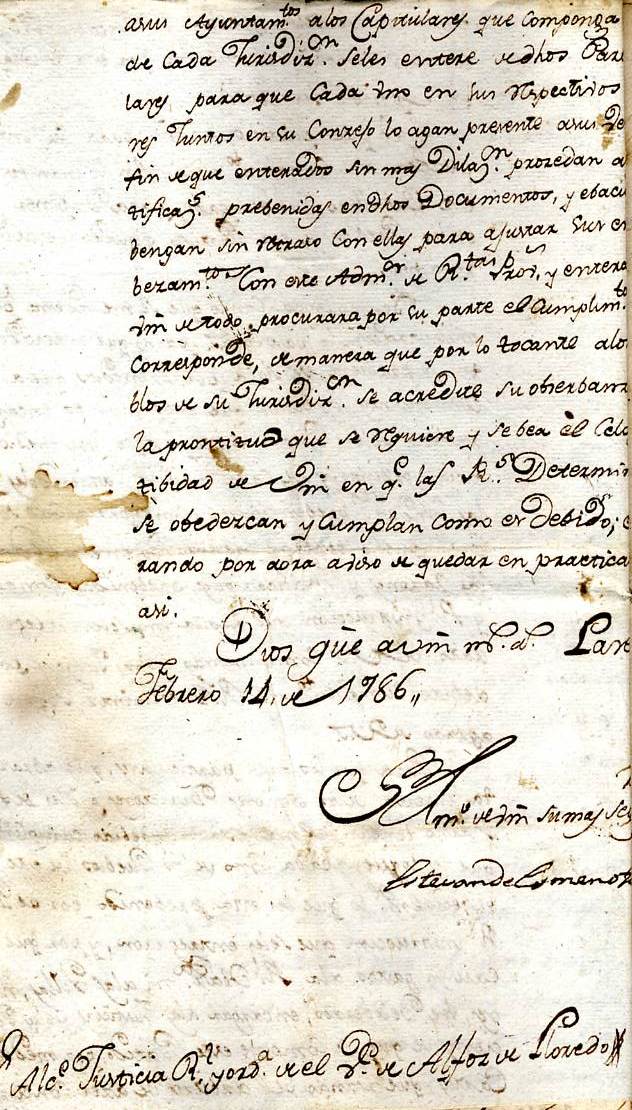 asus Ayuntam.tos a los Capitulares que Componga
de Cada Jurisdiz.on seles entere de dhos Par
lares para que Cada uno en sus Respectivos
res Juntos en su Congreso lo agan presente asus Ve
fin de que enterados sin mas Dilaz.n prozedan a
tificaz.s prebenidas en dhos Documentos, y ebacu
bengan sin retraso Con ellas para ajustar sus en
bezam.tos Con este Adm.or de R.tas Pro.s, y entera
Vm de todo procurara por su parte el Cumplim.to
Corresponde, de manera que por lo tocante alos
blos de su Jurisdiz.on se acredite su obserbanz
la prontitud que se Requiere y se bea el Celo
tibidad de Vm en q.e las R.s Determin
se obedezcan y Cumplan Como es debido; e
rando por aora abiso de quedar en practica
asi.
Dios gue a Vm m.s a.s Lare
Febrero 14, de 1786,,
BLM
m.o de Vm su mas Seg
Estevan de Ximeno
Alc.e Justicia R.l y ord.a de el V.e de Alfoz de Lloredo